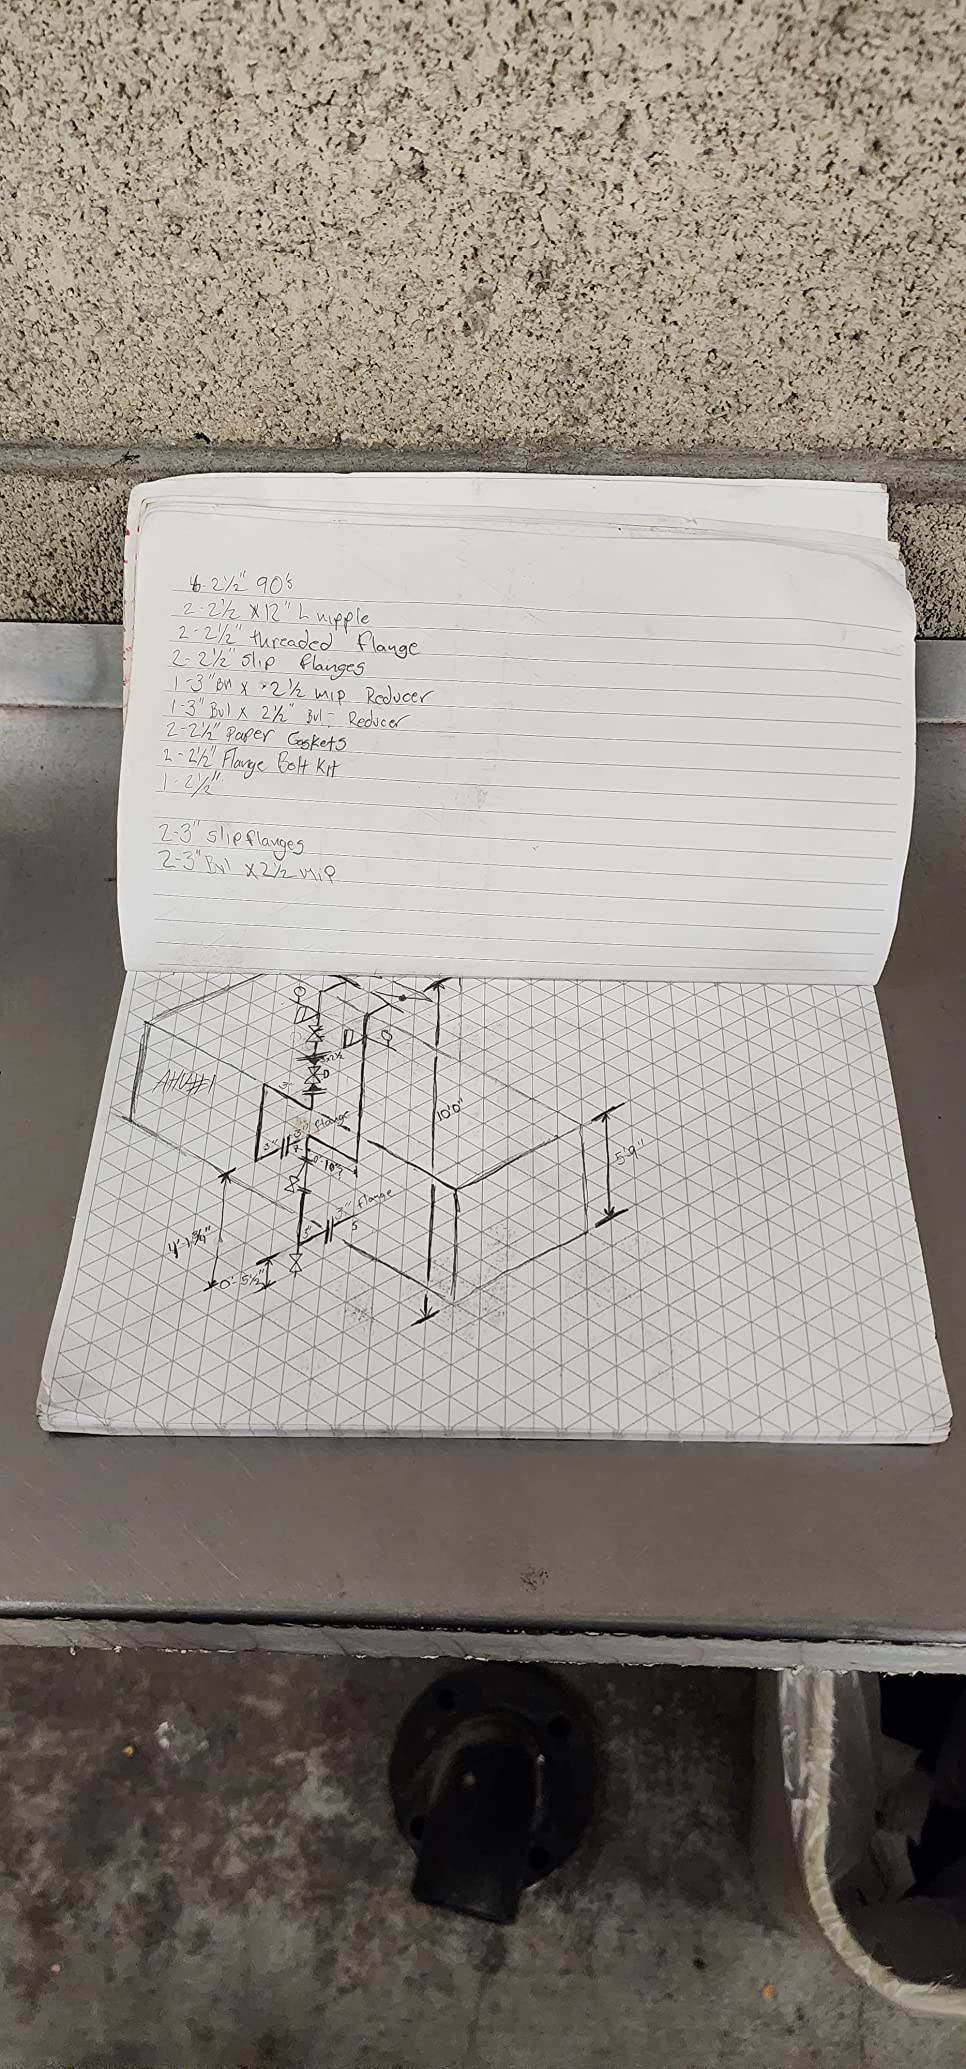 6-2½" 90's
2-2½ x12" L nipple
2-2½" threaded Flange
2-2½" slip flanges
1-3" Bvl x 2½ MIP Reducer
1-3" Bvl x 2½" Bvl- Reducer
2-2½" Paper Gaskets
2-2½" Flange Bolt Kit
1-2½"
2-3" slip flanges
2-3" Bvl x 2½ MIP
AHU#1
3x2½
3"
10'0"
3" flange
3"
5'9"
3" flange
S
3"
0'-5½"